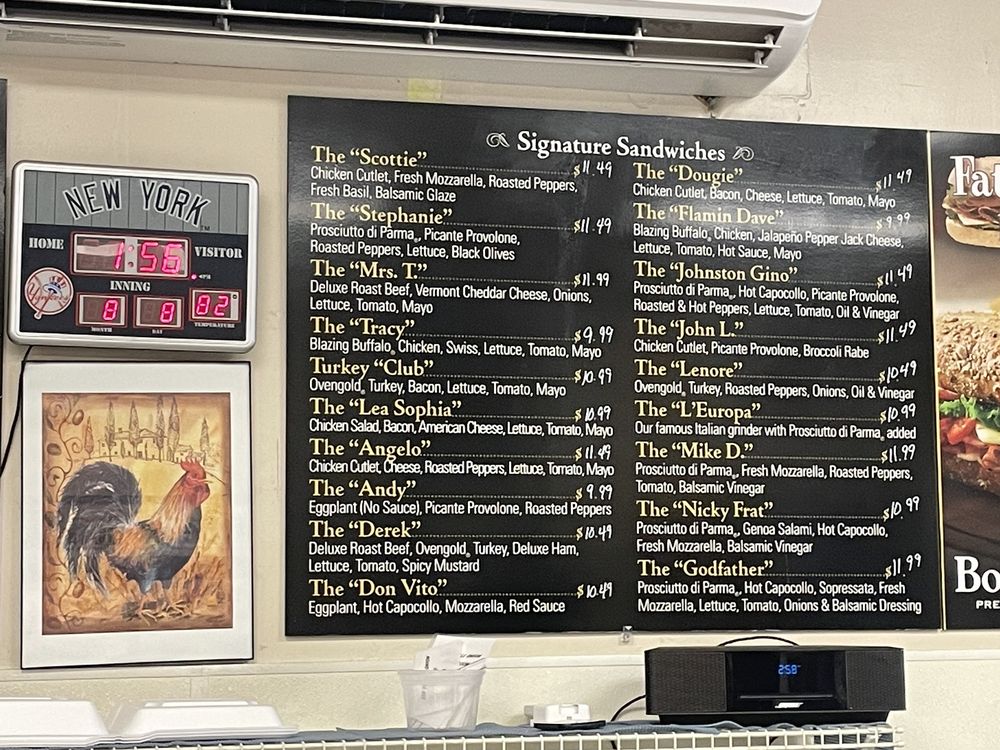 NEW YORK
HOME
1:56
VISITOR
PM
INNING
8
8
82
MONTH
DAY
TEMPERATURE
Yankees
Signature Sandwiches
The "Scottie" $11.49
Chicken Cutlet, Fresh Mozzarella, Roasted Peppers,
Fresh Basil, Balsamic Glaze
The "Stephanie" $11.49
Prosciutto di Parma®, Picante Provolone,
Roasted Peppers, Lettuce, Black Olives
The "Mrs. T." $11.99
Deluxe Roast Beef, Vermont Cheddar Cheese, Onions,
Lettuce, Tomato, Mayo
The "Tracy" $9.99
Blazing Buffalo® Chicken, Swiss, Lettuce, Tomato, Mayo
Turkey "Club" $10.99
Ovengold® Turkey, Bacon, Lettuce, Tomato, Mayo
The "Lea Sophia" $10.99
Chicken Salad, Bacon, American Cheese, Lettuce, Tomato, Mayo
The "Angelo" $11.49
Chicken Cutlet, Cheese, Roasted Peppers, Lettuce, Tomato, Mayo
The "Andy" $9.99
Eggplant (No Sauce), Picante Provolone, Roasted Peppers
The "Derek" $10.49
Deluxe Roast Beef, Ovengold® Turkey, Deluxe Ham,
Lettuce, Tomato, Spicy Mustard
The "Don Vito" $10.49
Eggplant, Hot Capocollo, Mozzarella, Red Sauce
The "Dougie" $11.49
Chicken Cutlet, Bacon, Cheese, Lettuce, Tomato, Mayo
The "Flamin Dave" $9.99
Blazing Buffalo® Chicken, Jalapeño Pepper Jack Cheese,
Lettuce, Tomato, Hot Sauce, Mayo
The "Johnston Gino" $11.49
Prosciutto di Parma®, Hot Capocollo, Picante Provolone,
Roasted & Hot Peppers, Lettuce, Tomato, Oil & Vinegar
The "John L." $11.49
Chicken Cutlet, Picante Provolone, Broccoli Rabe
The "Lenore" $10.49
Ovengold® Turkey, Roasted Peppers, Onions, Oil & Vinegar
The "L'Europa" $10.99
Our famous Italian grinder with Prosciutto di Parma® added
The "Mike D." $11.99
Prosciutto di Parma®, Fresh Mozzarella, Roasted Peppers,
Tomato, Balsamic Vinegar
The "Nicky Frat" $10.99
Prosciutto di Parma®, Genoa Salami, Hot Capocollo,
Fresh Mozzarella, Balsamic Vinegar
The "Godfather" $11.99
Prosciutto di Parma®, Hot Capocollo, Sopressata, Fresh
Mozzarella, Lettuce, Tomato, Onions & Balsamic Dressing
Fat
Bo
PRE
2:58
BOSE